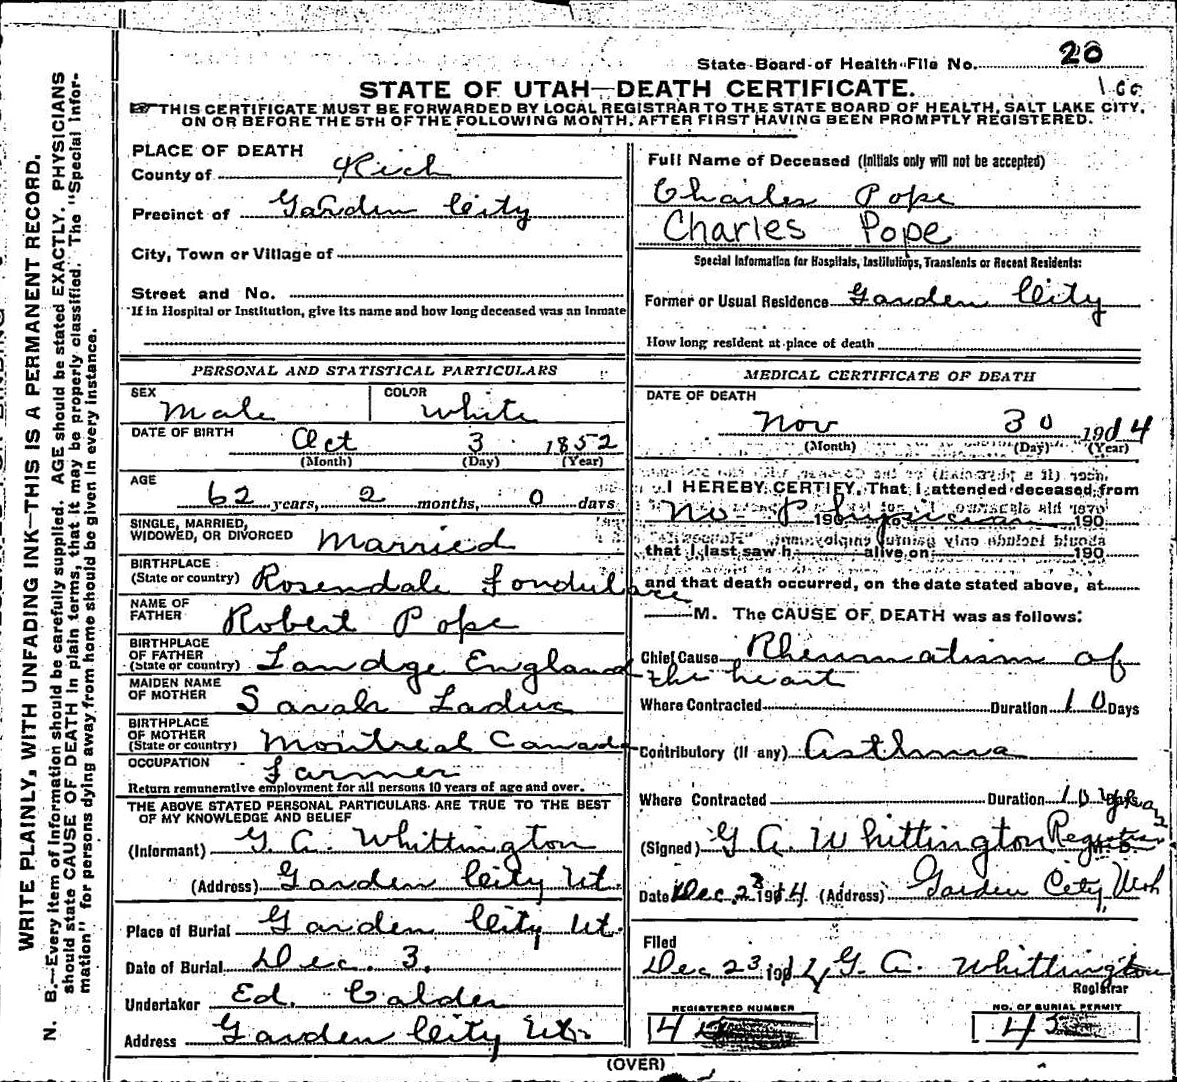 State Board of Health File No. 20
STATE OF UTAH—DEATH CERTIFICATE.
THIS CERTIFICATE MUST BE FORWARDED BY LOCAL REGISTRAR TO THE STATE BOARD OF HEALTH, SALT LAKE CITY,
ON OR BEFORE THE 5TH OF THE FOLLOWING MONTH, AFTER FIRST HAVING BEEN PROMPTLY REGISTERED.
WRITE PLAINLY, WITH UNFADING INK—THIS IS A PERMANENT RECORD.
N. B.—Every item of information should be carefully supplied. AGE should be stated EXACTLY. PHYSICIANS
should state CAUSE OF DEATH in plain terms, that it may be properly classified. The "Special Infor-
mation" for persons dying away from home should be given in every instance.
PLACE OF DEATH
County of Rich
Precinct of Garden City
City, Town or Village of
Street and No.
If in Hospital or Institution, give its name and how long deceased was an inmate
PERSONAL AND STATISTICAL PARTICULARS
SEX Male COLOR White
DATE OF BIRTH Oct 3 1852
(Month) (Day) (Year)
AGE 62 years, 2 months, 0 days
SINGLE, MARRIED,
WIDOWED, OR DIVORCED Married
BIRTHPLACE
(State or country) Rosendale Fondulare
NAME OF
FATHER Robert Pope
BIRTHPLACE
OF FATHER
(State or country) Landge England
MAIDEN NAME
OF MOTHER Sarah Laduc
BIRTHPLACE
OF MOTHER
(State or country) Montreal Canada
OCCUPATION Farmer
Return remunerative employment for all persons 10 years of age and over.
THE ABOVE STATED PERSONAL PARTICULARS ARE TRUE TO THE BEST
OF MY KNOWLEDGE AND BELIEF
(Informant) G. A. Whittington
(Address) Garden City Ut.
Place of Burial Garden City Ut.
Date of Burial Dec. 3.
Undertaker Ed. Calder
Address Garden City Ut.
Full Name of Deceased (Initials only will not be accepted)
Charles Pope
Charles Pope
Special Information for Hospitals, Institutions, Transients or Recent Residents:
Former or Usual Residence Garden City
How long resident at place of death
MEDICAL CERTIFICATE OF DEATH
DATE OF DEATH
Nov 30 1914
(Month) (Day) (Year)
I HEREBY CERTIFY, That I attended deceased from
No Physician 190 190
that I last saw h alive on 190
and that death occurred, on the date stated above, at
M. The CAUSE OF DEATH was as follows:
Chief Cause Rheumatism of
the heart
Where Contracted Duration 10 Days
Contributory (if any) Asthma
Where Contracted Duration 10 Years
(Signed) G. A. Whittington Registrar
Date Dec. 23 1914. (Address) Garden City, Utah
Filed
Dec 23 1914 G. A. Whittington
Registrar
REGISTERED NUMBER
4
NO. OF BURIAL PERMIT
43
(OVER)